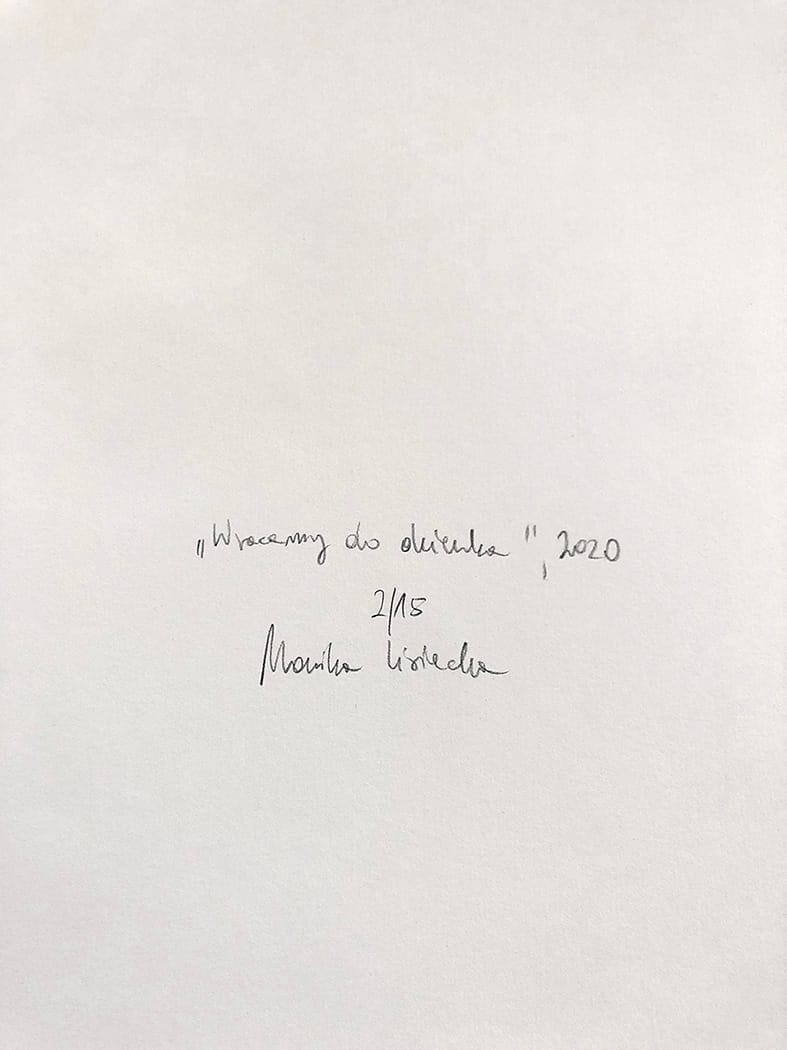 „Wracamy do okienka", 2020
2/15
Monika Lisiecka